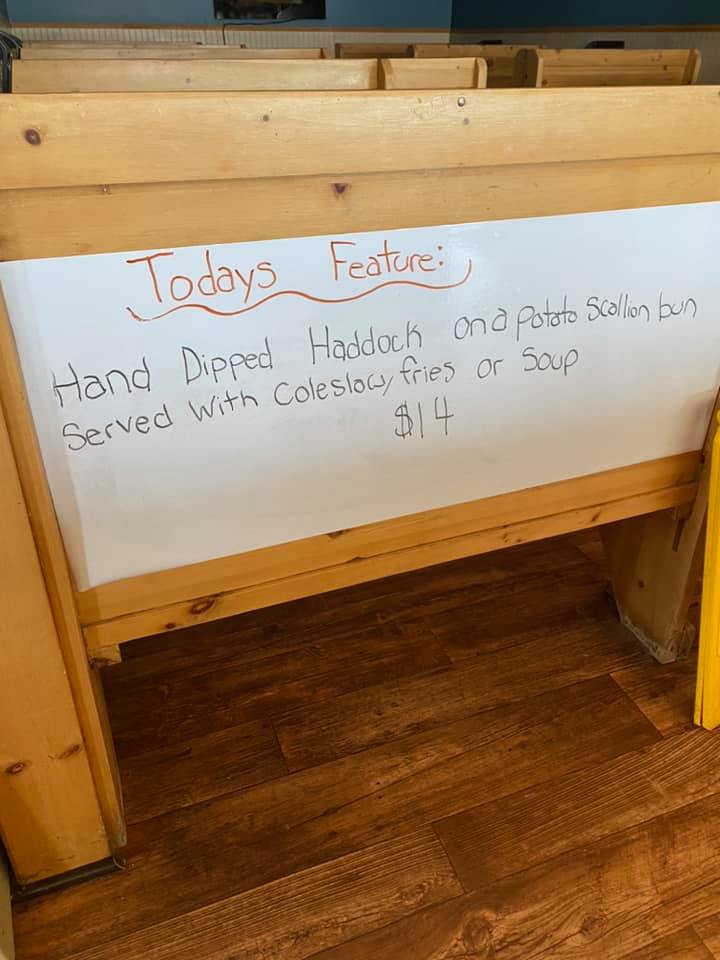 Todays Feature:
Hand Dipped Haddock on a potato Scallion bun
Served With Coleslaw, fries or Soup
$14